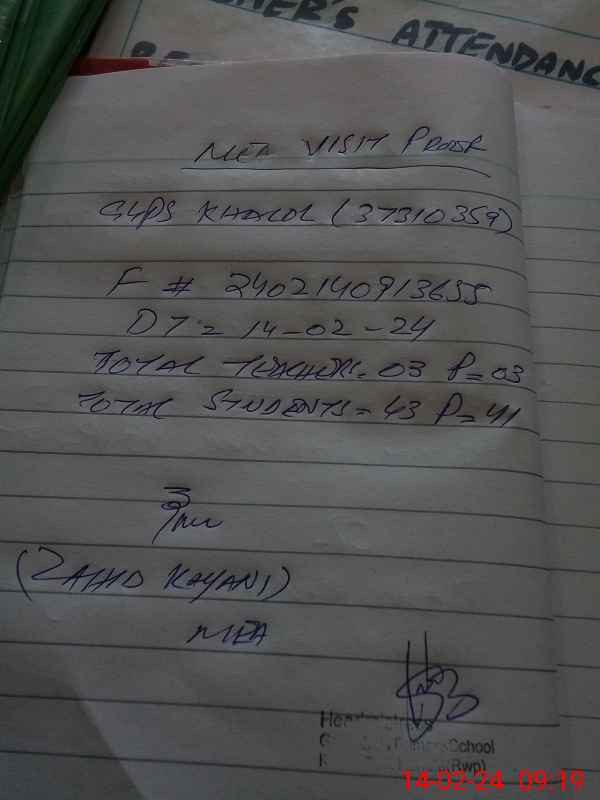 HER'S ATTENDANC
MEA VISIT PROOF
GLPS KHALOL (37310359)
F # 2402140913655
DT = 14-02-24
TOTAL TEACHERS = 03 P = 03
TOTAL STUDENTS = 43 P = 41
(ZAHID KAYANI)
MEA
School
(Rwp)
14-02-24 09:19